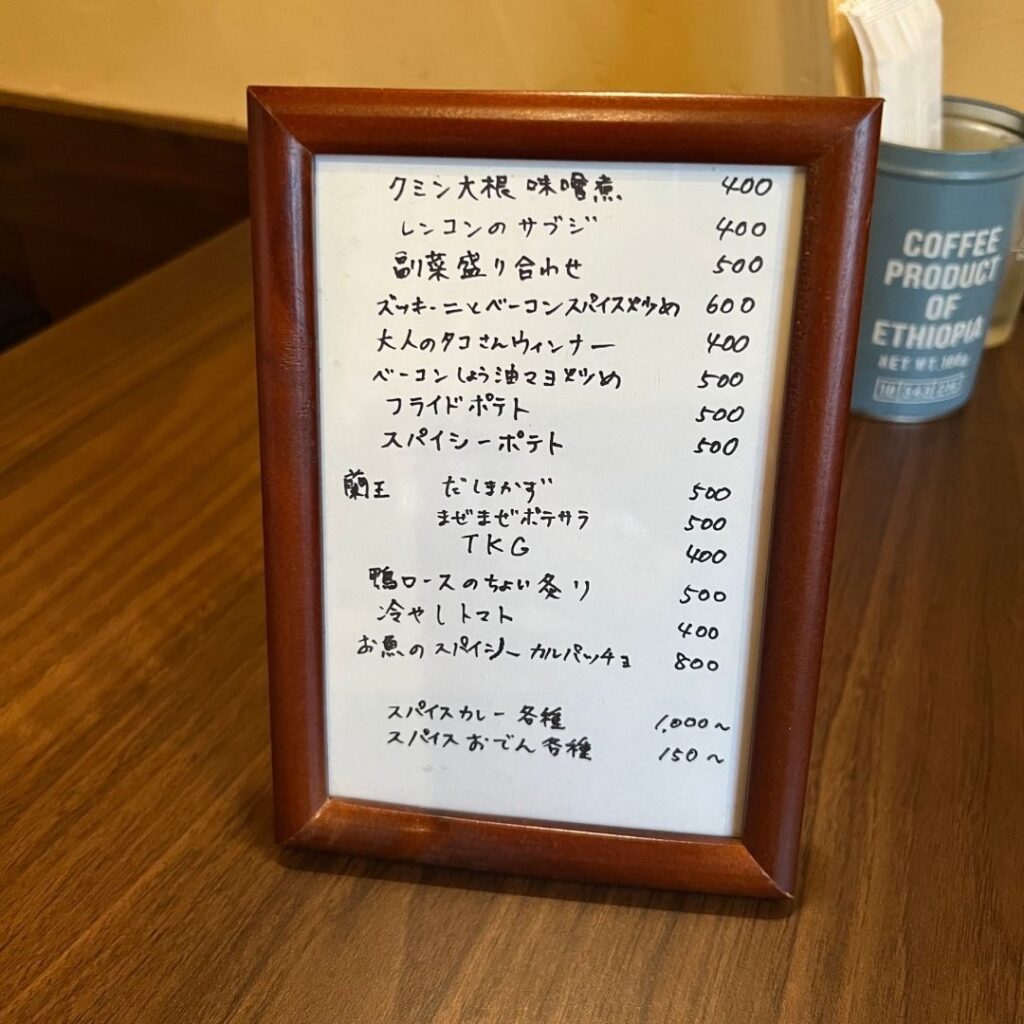 クミン大根 味噌煮 400
レンコンのサブジ 400
副菜盛り合わせ 500
ズッキーニとベーコンスパイス炒め 600
大人のタコさんウィンナー 400
ベーコンしょう油マヨ炒め 500
フライドポテト 500
スパイシーポテト 500
蘭王 だしまかず 500
まぜまぜポテサラ 500
TKG 400
鴨ロースのちょい炙り 500
冷やしトマト 400
お魚のスパイシーカルパッチョ 800
スパイスカレー各種 1,000~
スパイスおでん各種 150~
COFFEE
PRODUCT
OF
ETHIOPIA
NET WT.100g